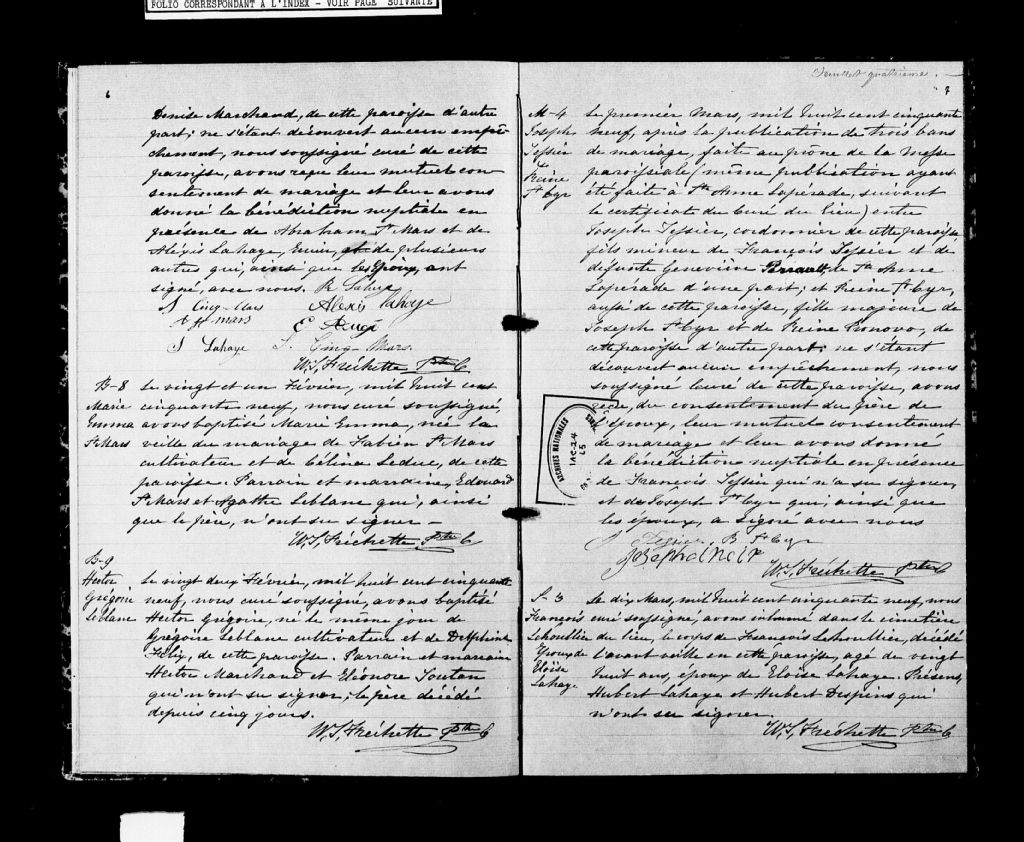 FOLIO CORRESPONDANT A L'INDEX - VOIR PAGE SUIVANTE
6
Denise Marchand, de cette paroisse d'autre
part; ne s'étant découvert aucun empê-
chement, nous soussigné curé de cette
paroisse, avons reçu leur mutuel con
sentement de mariage et leur avons
donné la bénédiction nuptiale en
présence de Abraham St Mars et de
Alexis Lahaye, et de plusieurs
autres qui, ainsi que les époux, ont
signé, avec nous. R Lahaye
J Cinq-Mars Alexis Lahaye
mars E
J Lahaye J. Cinq Mars.
W.S. Fréchette Ptre C
B-8
Marie
Emma
St Mars
Le vingt et un Février, mil huit cent
cinquante neuf, nous curé soussigné,
avons baptisé Marie Emma, née la
veille du mariage de Fabien St Mars
cultivateur et de Célina Leduc, de cette
paroisse. Parrain et marraine, Edouard
St Mars et Agathe Leblanc qui, ainsi
que le père, n'ont su signer -
W.S. Fréchette Ptre C
B-9
Hector
Grégoire
Leblanc
Le vingt deux Février, mil huit cent cinquante
neuf, nous curé soussigné, avons baptisé
Hector Grégoire, né le même jour de
Grégoire Leblanc cultivateur et de Delphine
de cette paroisse. Parrain et marraine
Hector Marchand et Eléonore Toutan
qui n'ont su signer; le père décédé
depuis cinq jours.
W.S. Fréchette Ptre C
Feuillet quatrième.
M-4
Joseph
Tessier
&
Reine
St Cyr
Le premier Mars, mil huit cent cinquante
neuf, après la publication de trois bans
de mariage, faite au prône de la Messe
paroissiale (même publication ayant
été faite à Ste Anne Lapérade, suivant
le certificat du Curé du lieu) entre
Joseph Tessier, cordonnier de cette paroisse
fils mineur de François Tessier et de
défunte Geneviève Perrault, de Ste Anne
Laperade d'une part; et Reine St Cyr,
aussi de cette paroisse, fille majeure de
Joseph St Cyr et de Reine Pronovo, de
cette paroisse d'autre part; ne s'étant
découvert aucun empêchement, nous
soussigné Curé de cette paroisse, avons
reçu, du consentement du père de
l'époux, leur mutuel consentement
de mariage et leur avons donné
la bénédiction nuptiale en présence
de François Tessier qui n'a su signer,
et de Joseph St Cyr qui, ainsi que
les époux, a signé avec nous
J Tessier R St Cyr
W.S. Fréchette Ptre C
S-3
François
Lehoullier
Epoux de
Eloïse
Lahaye
Le dix Mars, mil huit cent cinquante neuf, nous
curé soussigné, avons inhumé dans le cimetière
du lieu, le corps de François Lehoullier, décédé
l'avant veille en cette paroisse, agé de vingt
huit ans, époux de Eloïse Lahaye. Présens,
Hubert Lahaye et Hubert Despins qui
n'ont su signer.
W.S. Fréchette Ptre C
ARCHIVES NATIONALES